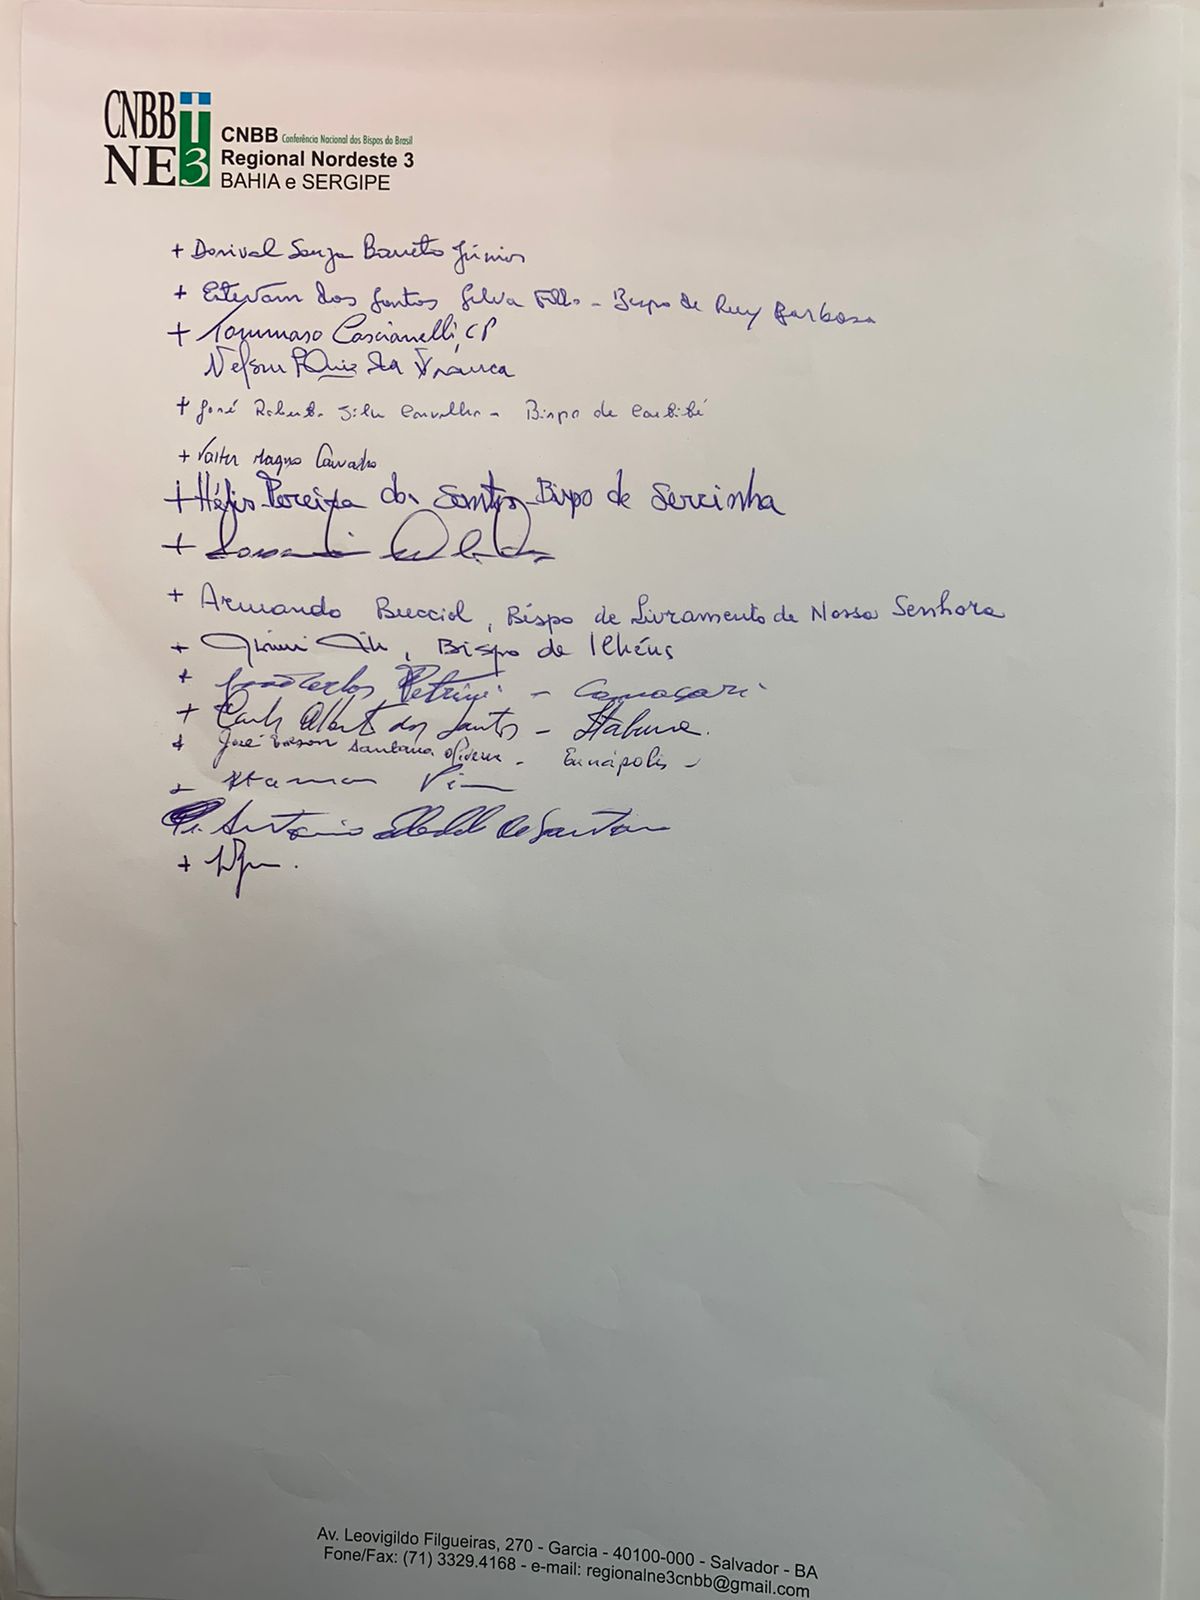 CNBB
NE3
CNBB Conferência Nacional dos Bispos do Brasil
Regional Nordeste 3
BAHIA e SERGIPE
+ Dorival Souza Barreto Júnior
+ Estevam dos Santos Silva Filho - Bispo de Ruy Barbosa
+ Tommaso Cascianelli, CP
Nelson da França
+ José Roberto Silva Carvalho - Bispo de Caetité
+ Valter Magno Carvalho
+ Hélio Pereira dos Santos - Bispo de Serrinha
+
+ Armando Bucciol, Bispo de Livramento de Nossa Senhora
+ , Bispo de Ilhéus
+ João Carlos Petrini - Camaçari
+ Carlos Alberto dos Santos - Itabuna.
+ José Edson Santana Oliveira - Eunápolis -
+ Itamar Vian
Pe. Antonio de Santana
+
Av. Leovigildo Filgueiras, 270 - Garcia - 40100-000 - Salvador - BA
Fone/Fax: (71) 3329.4168 - e-mail: regionalne3cnbb@gmail.com